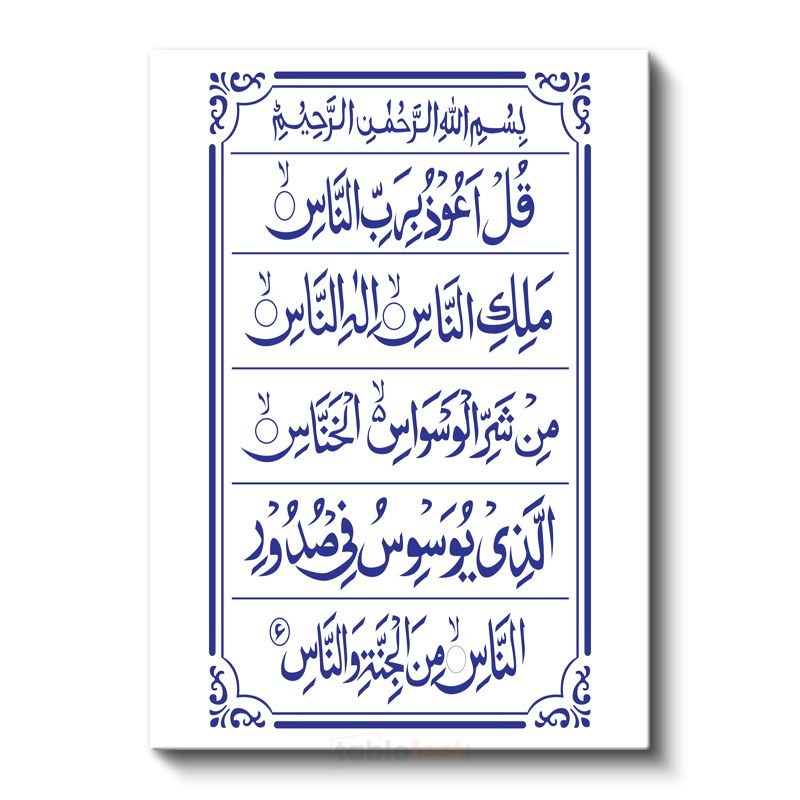 بِسْمِ اللهِ الرَّحْمٰنِ الرَّحِيْمِ
قُلْ اَعُوْذُ بِرَبِّ النَّاسِۙ
مَلِكِ النَّاسِۙ اِلٰهِ النَّاسِۙ
مِنْ شَرِّ الْوَسْوَاسِ ۙ۵ الْخَنَّاسِۙ
الَّذِىْ يُوَسْوِسُ فِىْ صُدُوْرِ
النَّاسِۙ مِنَ الْجِنَّةِ وَالنَّاسِ ۶
tablofest